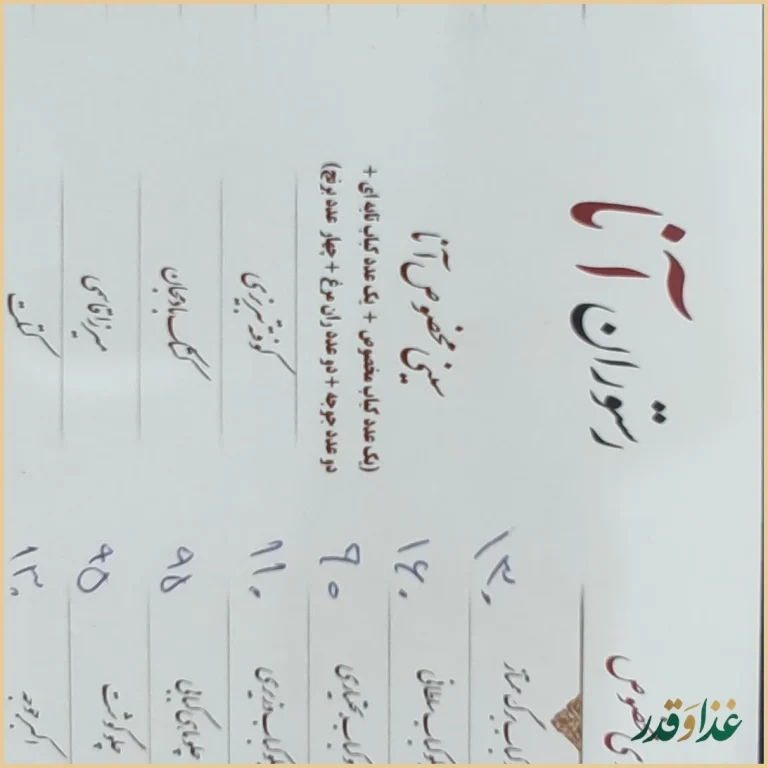 رستوران آنا
سینی مخصوص آنا
(یک عدد کباب مخصوص + یک عدد کباب تابه ای +
دو عدد جوجه + دو عدد ران مرغ + چهار عدد برنج)
کوفته تبریزی
کشک بادمجان
میرزاقاسمی
کتلت
کباب برگ ممتاز
۱۳۰
کباب سلطانی
۱۶۰
کباب بختیاری
۹۰
کباب وزیری
۱۱۰
چلو ماهی کبابی
۹۵
چلو گوشت
۹۵
اکبر جوجه
۱۳۰
غذا و قدر